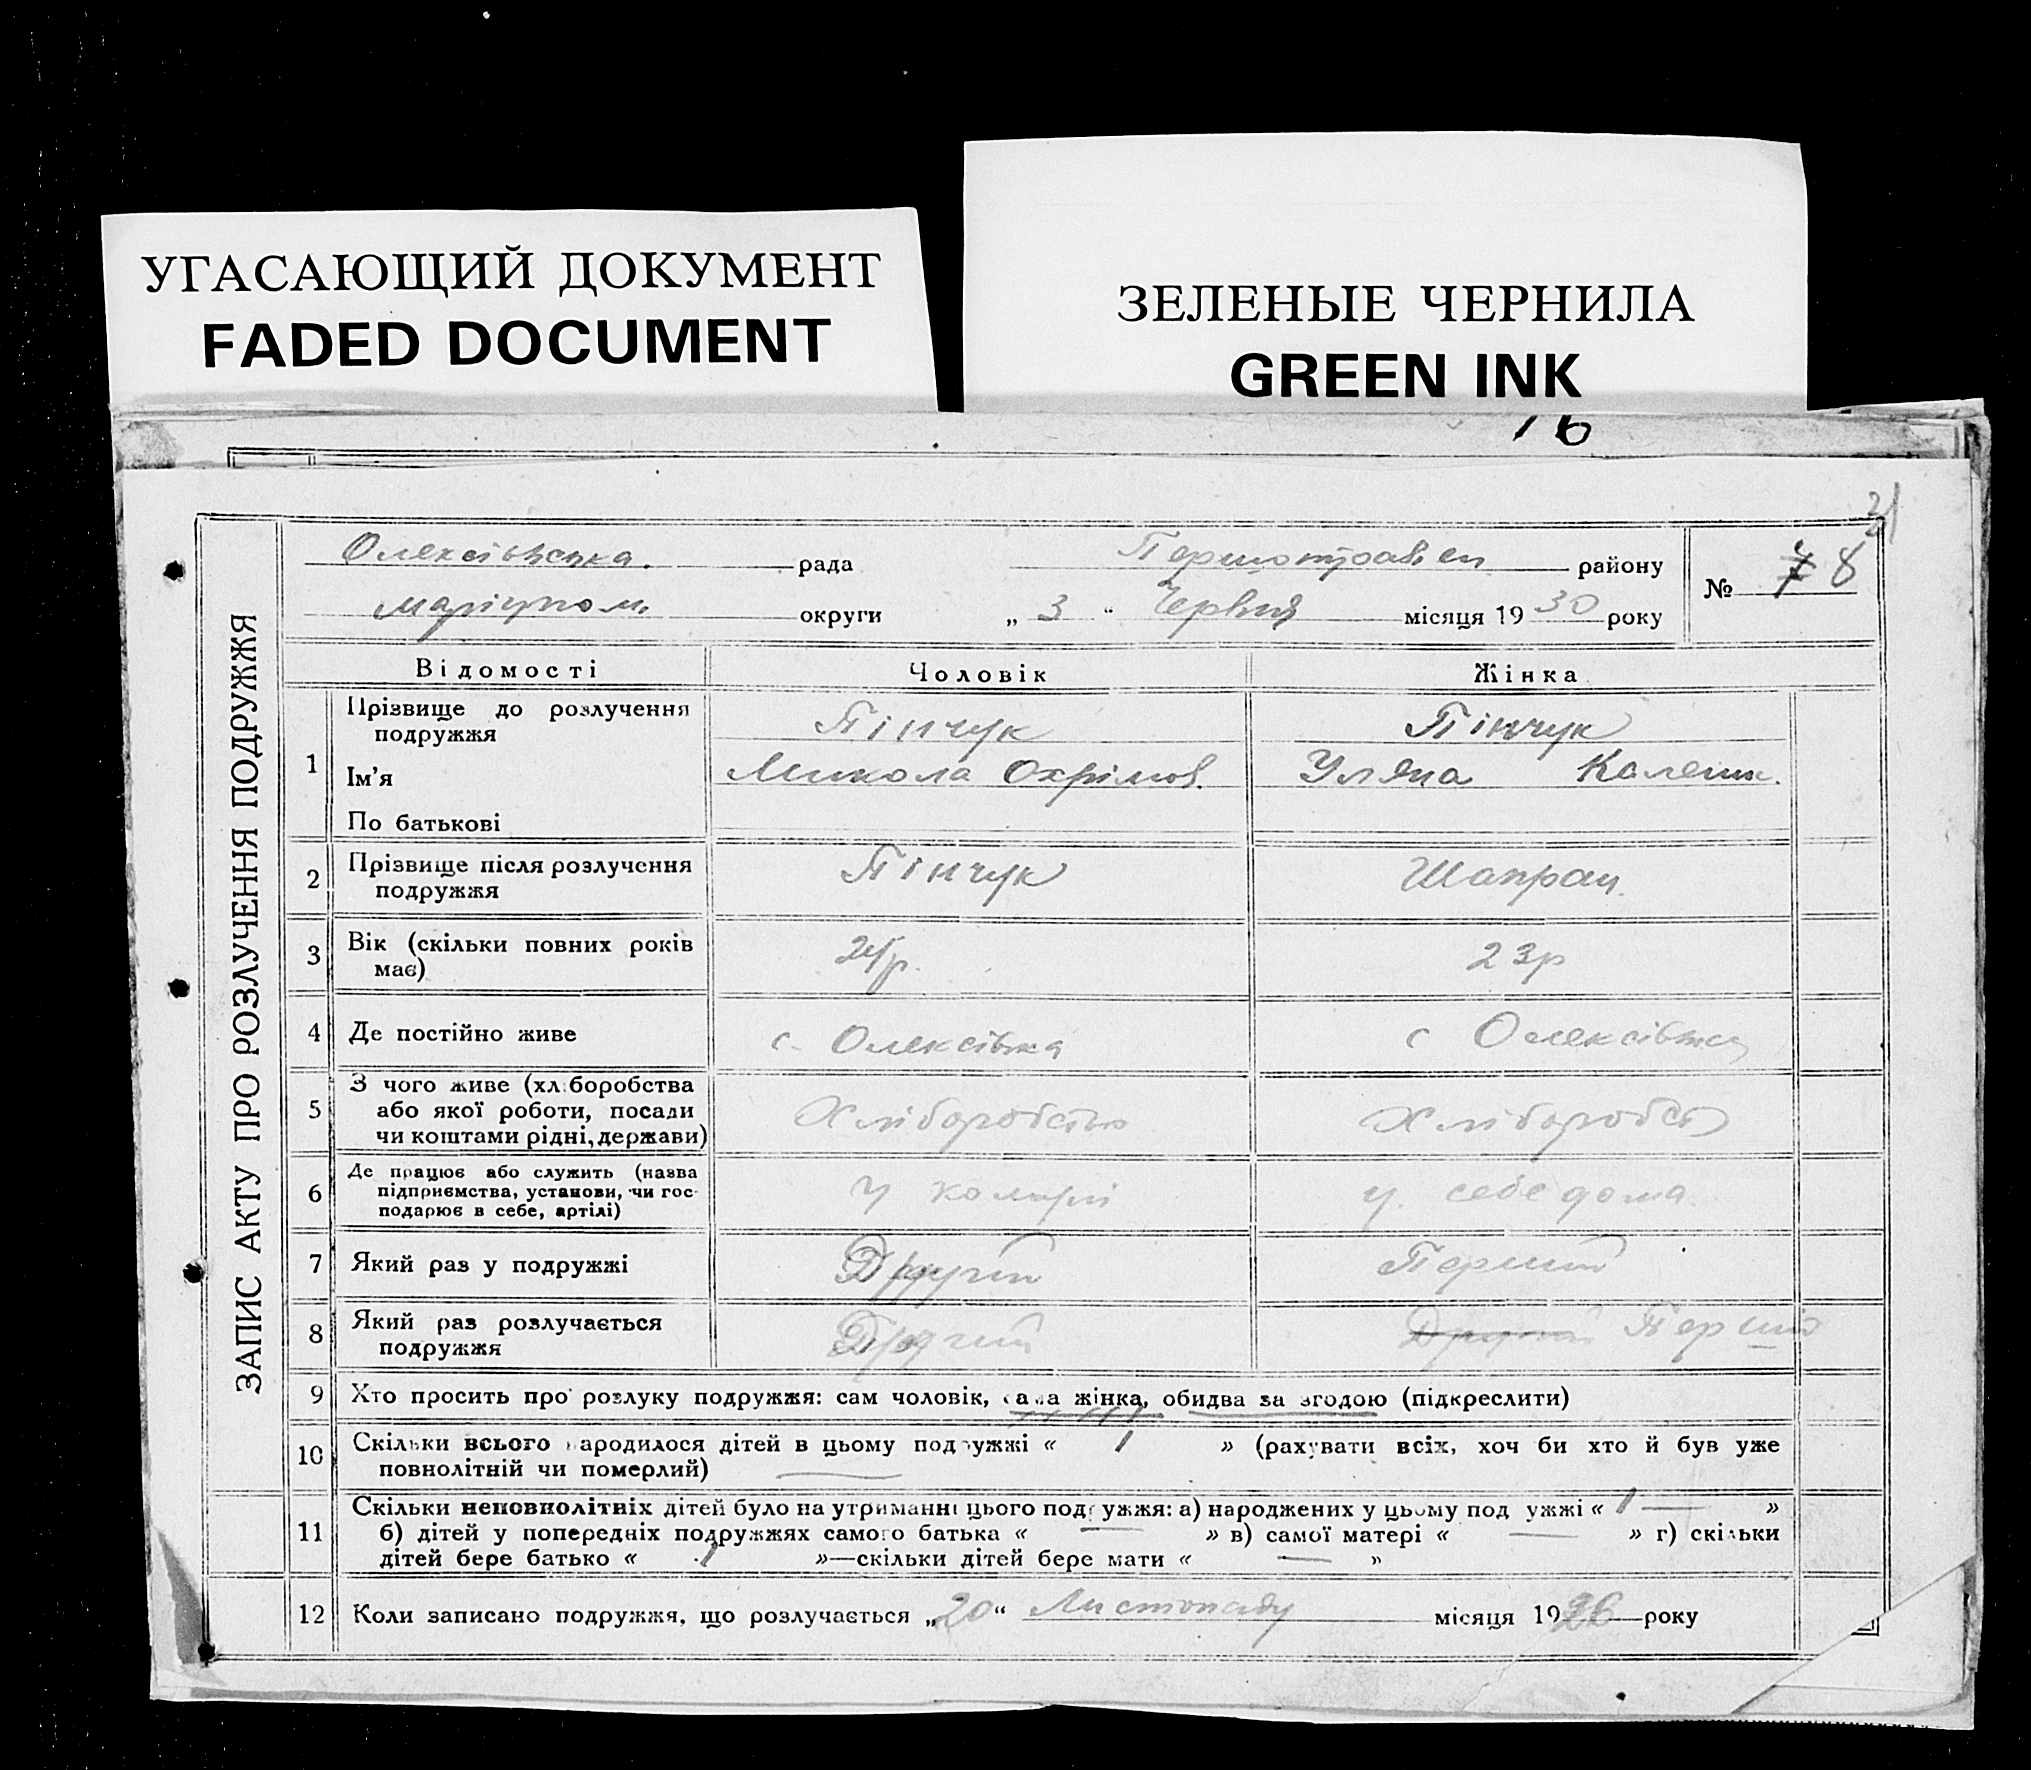 УГАСАЮЩИЙ ДОКУМЕНТ
FADED DOCUMENT
ЗЕЛЕНЫЕ ЧЕРНИЛА
GREEN INK
16
31
ЗАПИС АКТУ ПРО РОЗЛУЧЕННЯ ПОДРУЖЖЯ
Олексіівська. рада Першотравен району № 7 8
маріупол. округи „ 3 " Червня місяця 1930 року
Відомості Чоловік Жінка
1 Прізвище до розлучення подружжя Пінчук Пінчук
Ім'я Микола Охрімов. Уляна Калени.
По батькові
2 Прізвище після розлучення подружжя Пінчук Шапран.
3 Вік (скільки повних років має) 24р. 23р
4 Де постійно живе с. Олексівка с Олексівка
5 З чого живе (хліборобства або якої роботи, посади чи коштами рідні, держави) Хліборобство Хліборобст
6 Де працює або служить (назва підприємства, установи, чи господарює в себе, артілі) у у себе дома.
7 Який раз у подружжі Другий Перший
8 Який раз розлучається подружжя Другий Другий Перший
9 Хто просить про розлуку подружжя: сам чоловік, сама жінка, обидва за згодою (підкреслити)
10 Скільки всього народилося дітей в цьому подружжі « 1 » (рахувати всіх, хоч би хто й був уже
повнолітній чи померлий) —
11 Скільки неповнолітніх дітей було на утриманні цього подружжя: а) народжених у цьому подружжі « 1 — »
б) дітей у попередніх подружжях самого батька « — » в) самої матері « — » г) скільки
дітей бере батько « 1 »—скільки дітей бере мати « — »
12 Коли записано подружжя, що розлучається „20“ Листопаду місяця 1926 року